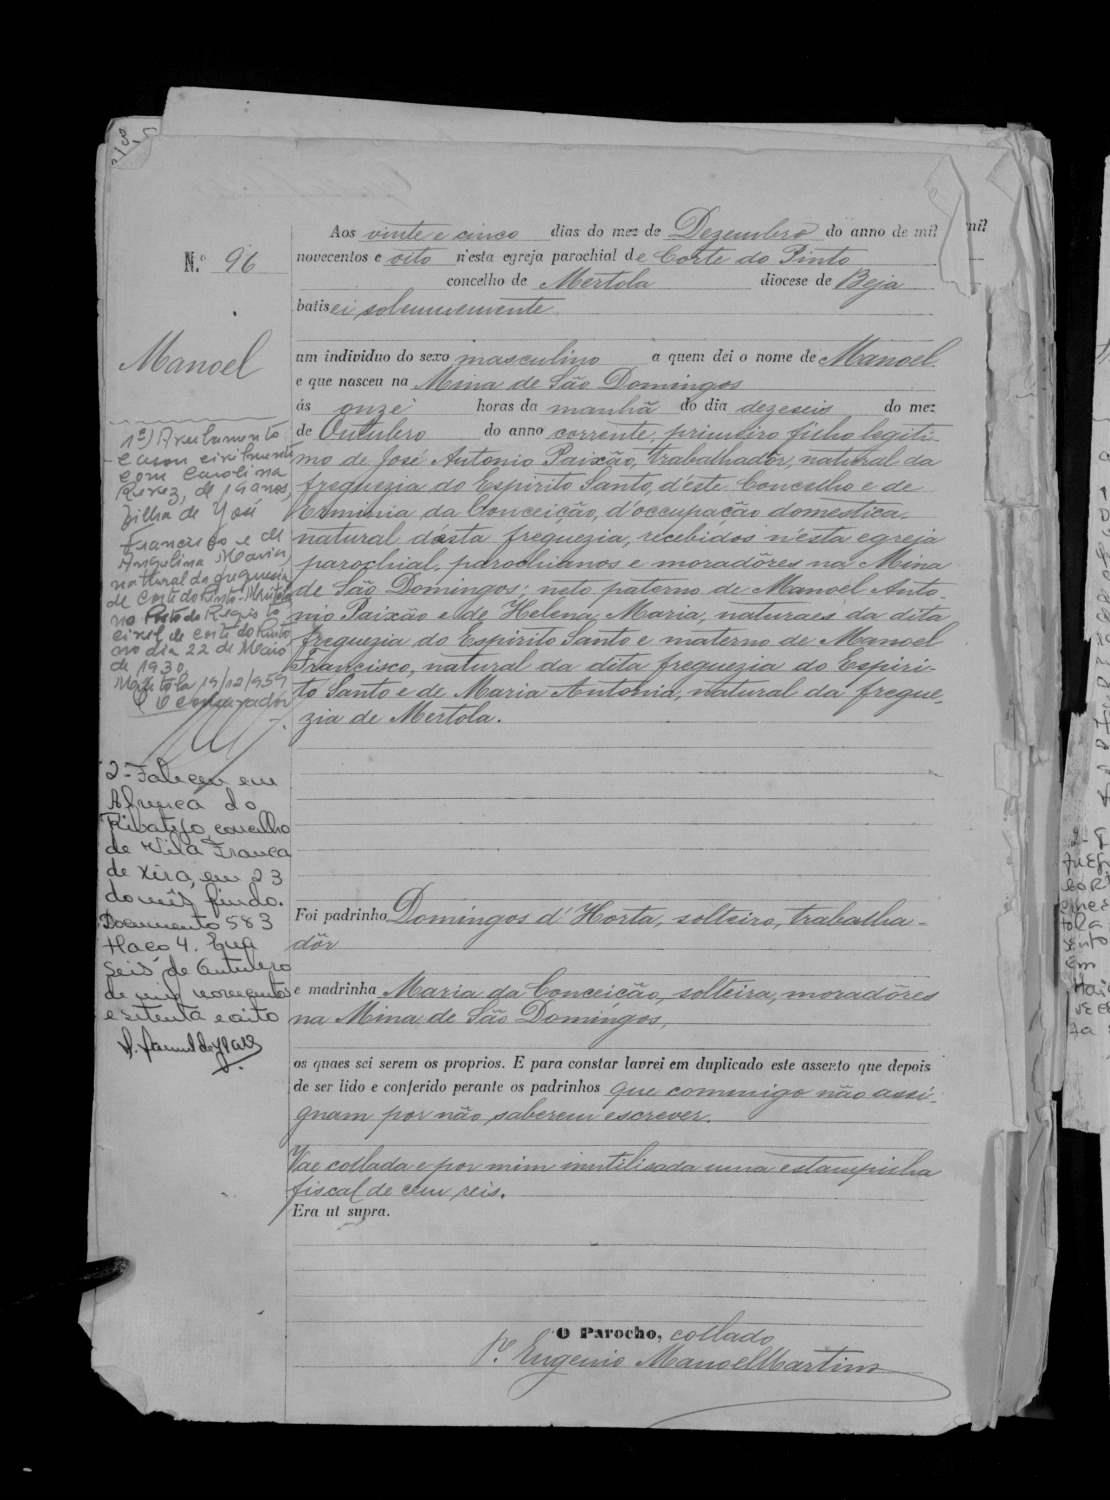 N.º 96
Manoel
Aos vinte e cinco dias do mez de Dezembro do anno de mil
novecentos e oito n'esta egreja parochial de Corte do Pinto
concelho de Mertola diocese de Beja
batisei solemnemente
um individuo do sexo masculino a quem dei o nome de Manoel
e que nasceu na Mina de São Domingos
ás onze horas da manhã do dia dezeseis do mez
de Outubro do anno corrente, primeiro filho legiti-
mo de José Antonio Paixão, trabalhadôr, natural da
freguezia do Espirito Santo, d'este Concelho e de
Erminia da Conceição, d'occupação domestica,
natural désta freguezia, recebidos n'ésta egreja
parochial, parochianos e moradôres na Mina
de São Domingos; neto paterno de Manoel Anto-
nio Paixão e de Helena Maria, naturaes da dita
freguezia do Espirito Santo e materno de Manoel
Francisco, natural da dita freguezia do Espiri-
to Santo e de Maria Antonia, natural da fregue-
zia de Mertola.
Foi padrinho Domingos d'Horta, solteiro, trabalha-
dôr
e madrinha Maria da Conceição, solteira, moradôres
na Mina de São Domingos,
os quaes sei serem os proprios. E para constar lavrei em duplicado este assento que depois
de ser lido e conferido perante os padrinhos que commigo não assi-
gnam por não saberem escrever.
Vae collada e por mim inutilisada uma estampilha
fiscal de cem reis.
Era ut supra.
O Parocho, collado
P.e Eugenio Manoel Martins
1º) Averbamento
Casou civilmente
com Carolina
de 19 anos,
filha de José
Francisco e de
Angelina Maria,
natural da freguesia
de Corte do Pinto - Mertola
no Posto do Registo
civil de Corte do Pinto
no dia 22 de Maio
de 1930.
Mertola 19/12/959
O Conservador
2- Faleceu em
do
Ribatejo, concelho
de Vila Franca
de Xira, em 23
do mês findo.
Documento 583
Maço 4. Em
seis de Outubro
de mil novecentos
e setenta e oito